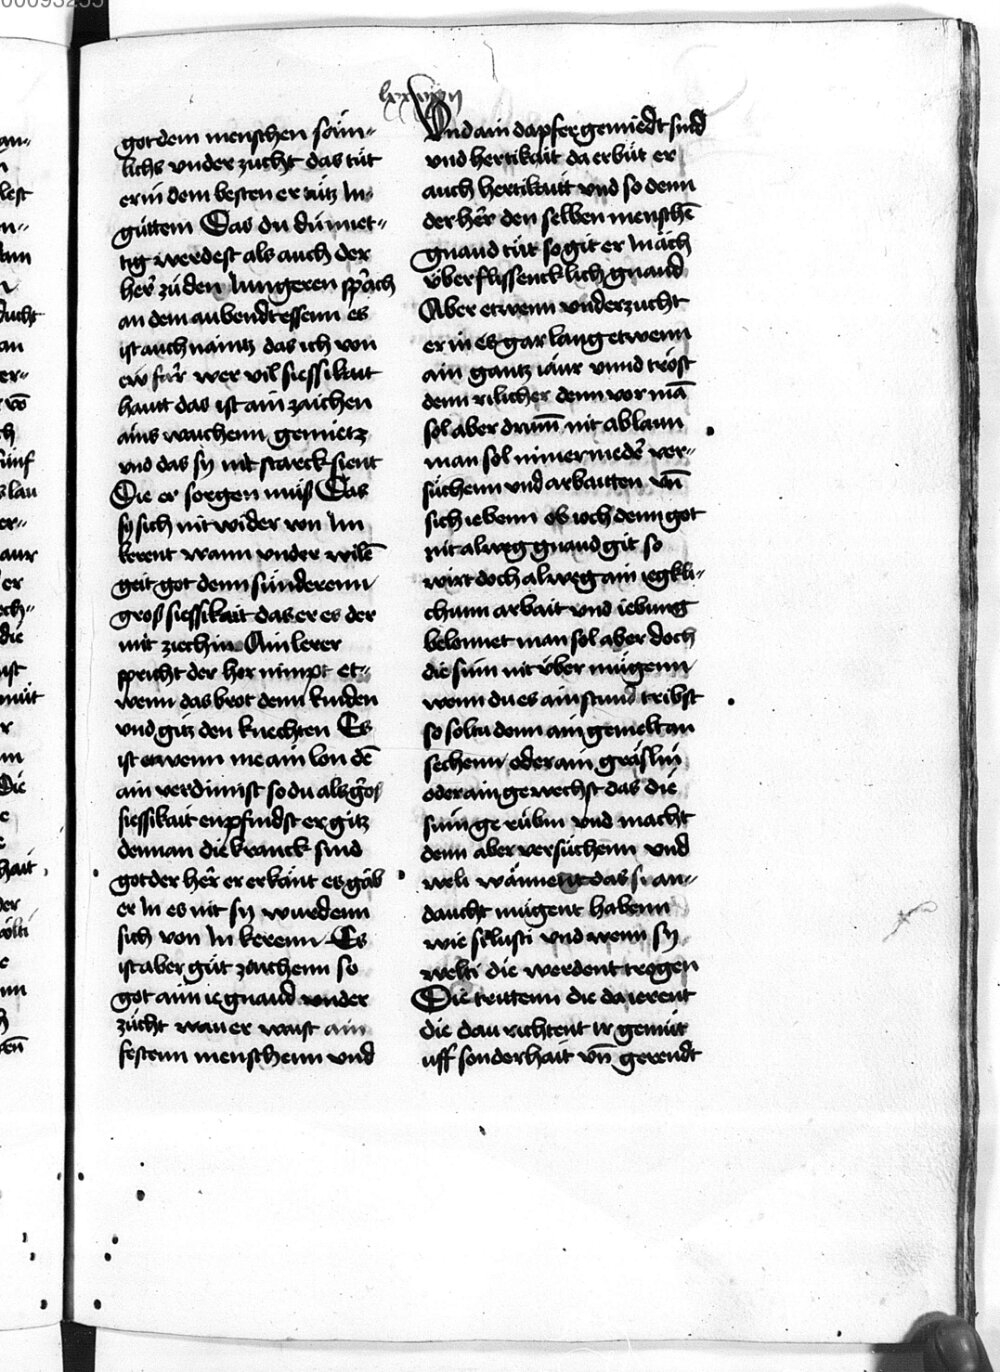 lxxxviiij
got dem menschen söm-
lichs vnder zucht das tůt
er in dem besten er tůtz In
gůttem Das du dúmiet-
tig werdest als auch der
her̂ zů den Jungeren sprǎch
an dem aubendtessenn es
ist auch nǎintz das ich von
ew far̂ wer vil siessikait
hautt das ist ain zaichen
ains waichenn gemietz
vnd das sy nit starck sient
Die er sorgen můsß Das
sy sich nit wider von Im
kerent wann vnder wilē
geit got denn súnderenn
groß siessikait das er es der
mit ziechin Ain lerer
spricht der her nimpt et-
wenn das brot denn kinden
vnd gitz den knechten Es
ist etwenn me ain lon dē
ain verdiennst so du als gros
siessikait enpfindst er gitz
dennan die kranck sind
got der her̂ er erkǎnt es gǎb
er In es nit sy wurdenn
sich von In kerenn Es
ist aber gůt zaichenn so
got ainn ie gnaud vnder
zúcht wan er waist ain
festenn menschenn vnd
Vnd ain dapfer gemiedt sind
vnd hertikait da erbút er
auch hertikaitt vnd so denn
der her̂ den selben menschē
gnaud tůt so git er In ǎch
úberflissencklich gnaud
Aber etwenn vnderzucht
er in es gar lang etwenn
ain gantz iǎur vnnd tröst
denn rilicher denn vor mā
sol aber drum̄ nit ablaun
man sol nimer miedē ver-
sůchenn vnd arbaitten vn̄
sich iebenn ob ioch denn got
nit alweg gnaud git so
wirt doch alweg ain iegkli-
chúm arbait vnd iebung
belonnet man sol aber doch
die sinn nit úber mügenn
wenn du es ain stund tribst
so soltu denn ain gemelt an
sechenn oder ain gräslin
oder ain gewechst das die
sinn ge rúbin vnd macht
denn aber versůchenn vnd
weli wǎnnent das si an-
daucht mügent habenn
wie si lusti vnd wenn sy
welti die werdent trogen
Die trittenn die da ierent
die dau richtent ir gemút
uff sonderhait vn̄ gerendt